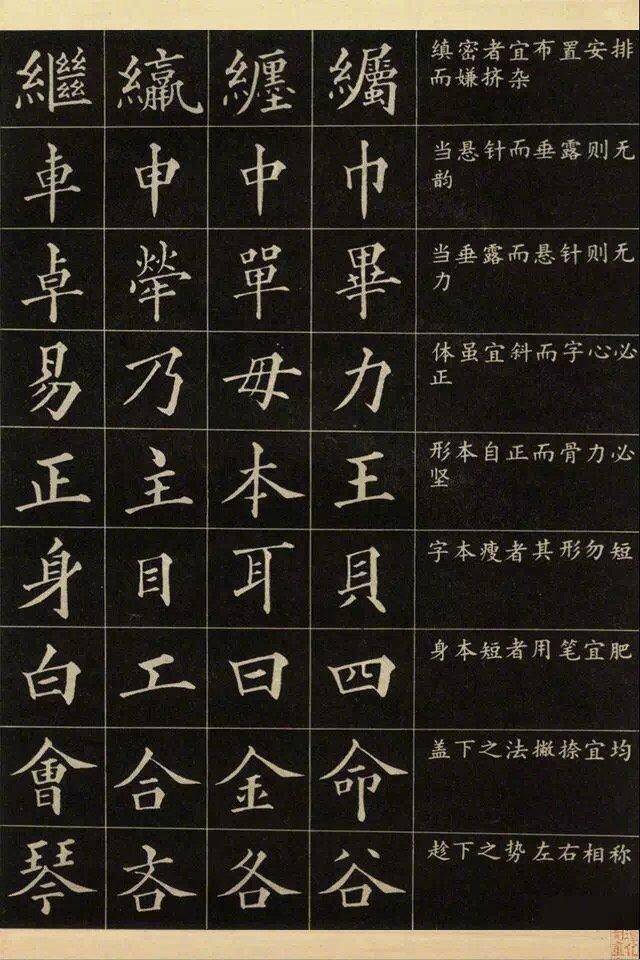 繼 纏
缜密者宜布置安排
而嫌挤杂
車 申 中 巾
当悬针而垂露则无
韵
卓 犖 單 畢
当垂露而悬针则无
力
易 乃 毋 力
体虽宜斜而字心必
正
正 主 本 王
形本自正而骨力必
坚
身 目 耳 貝
字本瘦者其形勿短
白 工 曰 四
身本短者用笔宜肥
會 合 金 命
盖下之法撇捺宜均
琴 吝 各 谷
趁下之势左右相称